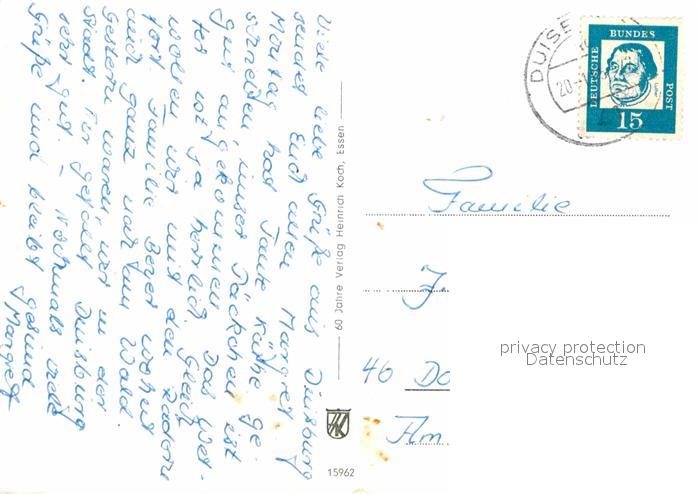 Viele liebe Grüße aus Duisburg
sendet Euch allen Margret
Montag hat Tante Käthe ge-
schrieben, unser Päckchen ist
gut angekommen. Das Wet-
ter ist ja herrlich. Gleich
wollen wir mit den Rädern
fort. Familie Berger wohnt
auch ganz nah am Wald
Gestern waren wir in der
Stadt. Mir gefällt Duisburg
sehr gut. - Nochmals viele
Grüße und bleibt gesund
Margret
60 Jahre Verlag Heinrich Koch, Essen
15962
DUISB
20.-1
DEUTSCHE BUNDES POST
15
Familie
J.
46 Do
Am
privacy protection
Datenschutz